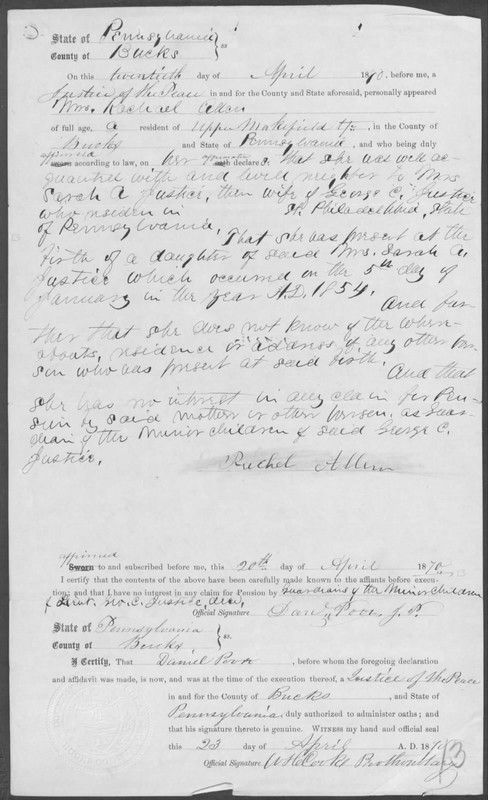 State of Pennsylvania
County of Bucks } ss
On this twentieth day of April 1870, before me, a
Justice of the Peace in and for the County and State aforesaid, personally appeared
Mrs. Rachael Allen
of full age, a resident of Upper Makefield tp, in the County of
Bucks and State of Pennsylvania, and who being duly
affirmed
sworn according to law, on her oath declares that she was well ac-
quainted with and lived neighbor to Mrs
Sarah A Justice, then wife of George C. Justice
who resides in St. Philadelphia, State
of Pennsylvania.
That she was present at the
birth of a daughter of said Mrs. Sarah A.
Justice which occurred on the 5th day of
January in the year A.D. 1854.
And fur-
ther that she does not know of the where-
abouts, residence or address of any other per-
son who was present at said birth.
And that
she has no interest in any claim for Pen-
sion by said mother or other person as Guar-
dian of the minor children of said George C.
Justice.
Rachel Allen
affirmed
Sworn to and subscribed before me, this 20th day of April 1870
I certify that the contents of the above have been carefully made known to the affiants before execu-
tion; and that I have no interest in any claim for Pension by Guardians of the Minor Children
of Lieut. C. Justice, decd.
Official Signature Danl Poore J. P.
State of Pennsylvania
County of Bucks } ss.
I Certify, That Daniel Poore, before whom the foregoing declaration
and affidavit was made, is now, and was at the time of the execution thereof, a Justice of the Peace
in and for the County of Bucks, and State of
Pennsylvania, duly authorized to administer oaths; and
that his signature thereto is genuine. Witness my hand and official seal
this 23 day of April A. D. 1870
Official Signature Cooks Prothonotary